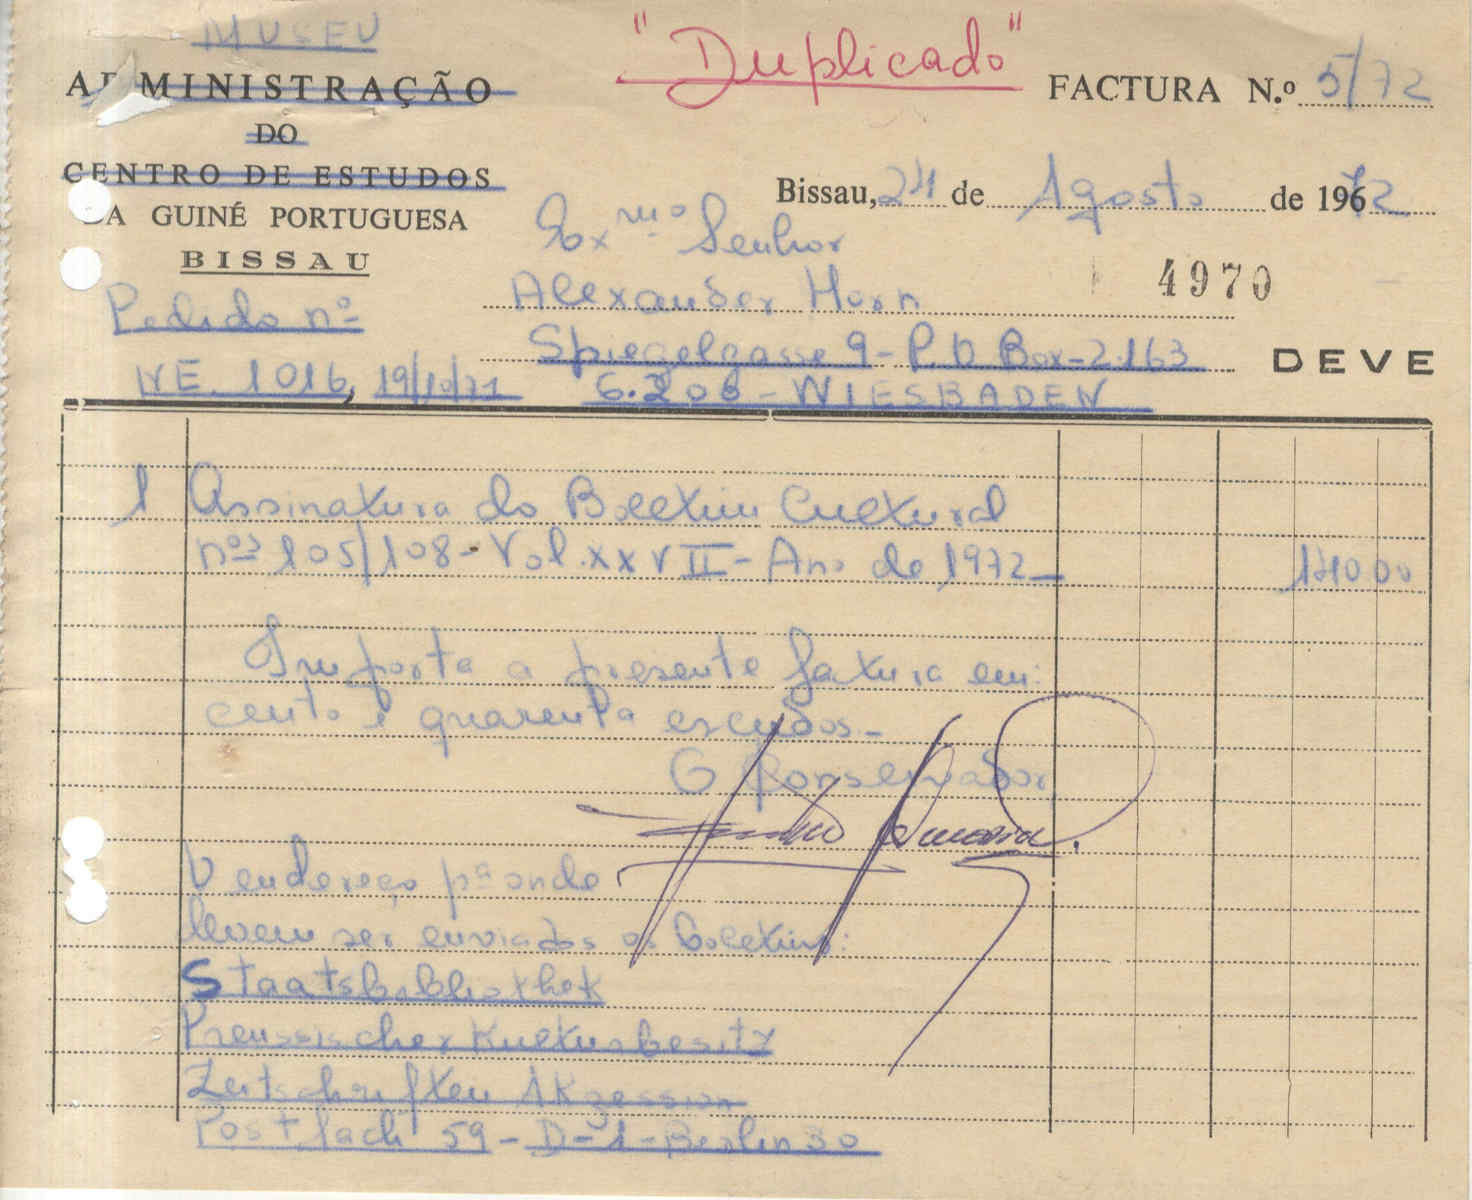 MUSEU
"Duplicado"
ADMINISTRAÇÃO
FACTURA N.º 5/72
DO
CENTRO DE ESTUDOS
Bissau, 24 de Agosto de 1972
DA GUINÉ PORTUGUESA
Exmº Senhor
BISSAU
4970
Alexander Horn
Pedido nº
Spiegelgasse 9 - P.O Box - 2.163
DEVE
NE. 1016, 19/10/71
6.208 - WIESBADEN
1 Assinatura do Boletim Cultural
nºs 105/108 - Vol. XXVII - Ano de 1972 - 140.00
Importa a presente fatura em:
cento e quarenta escudos. -
O Conservador
O endereço pª onde
devem ser enviados os boletins:
Staatsbibliothek
Preussischer Kulturbesitz
Zeitschriften Akzession
Postfach 59 - D-1-Berlin 30